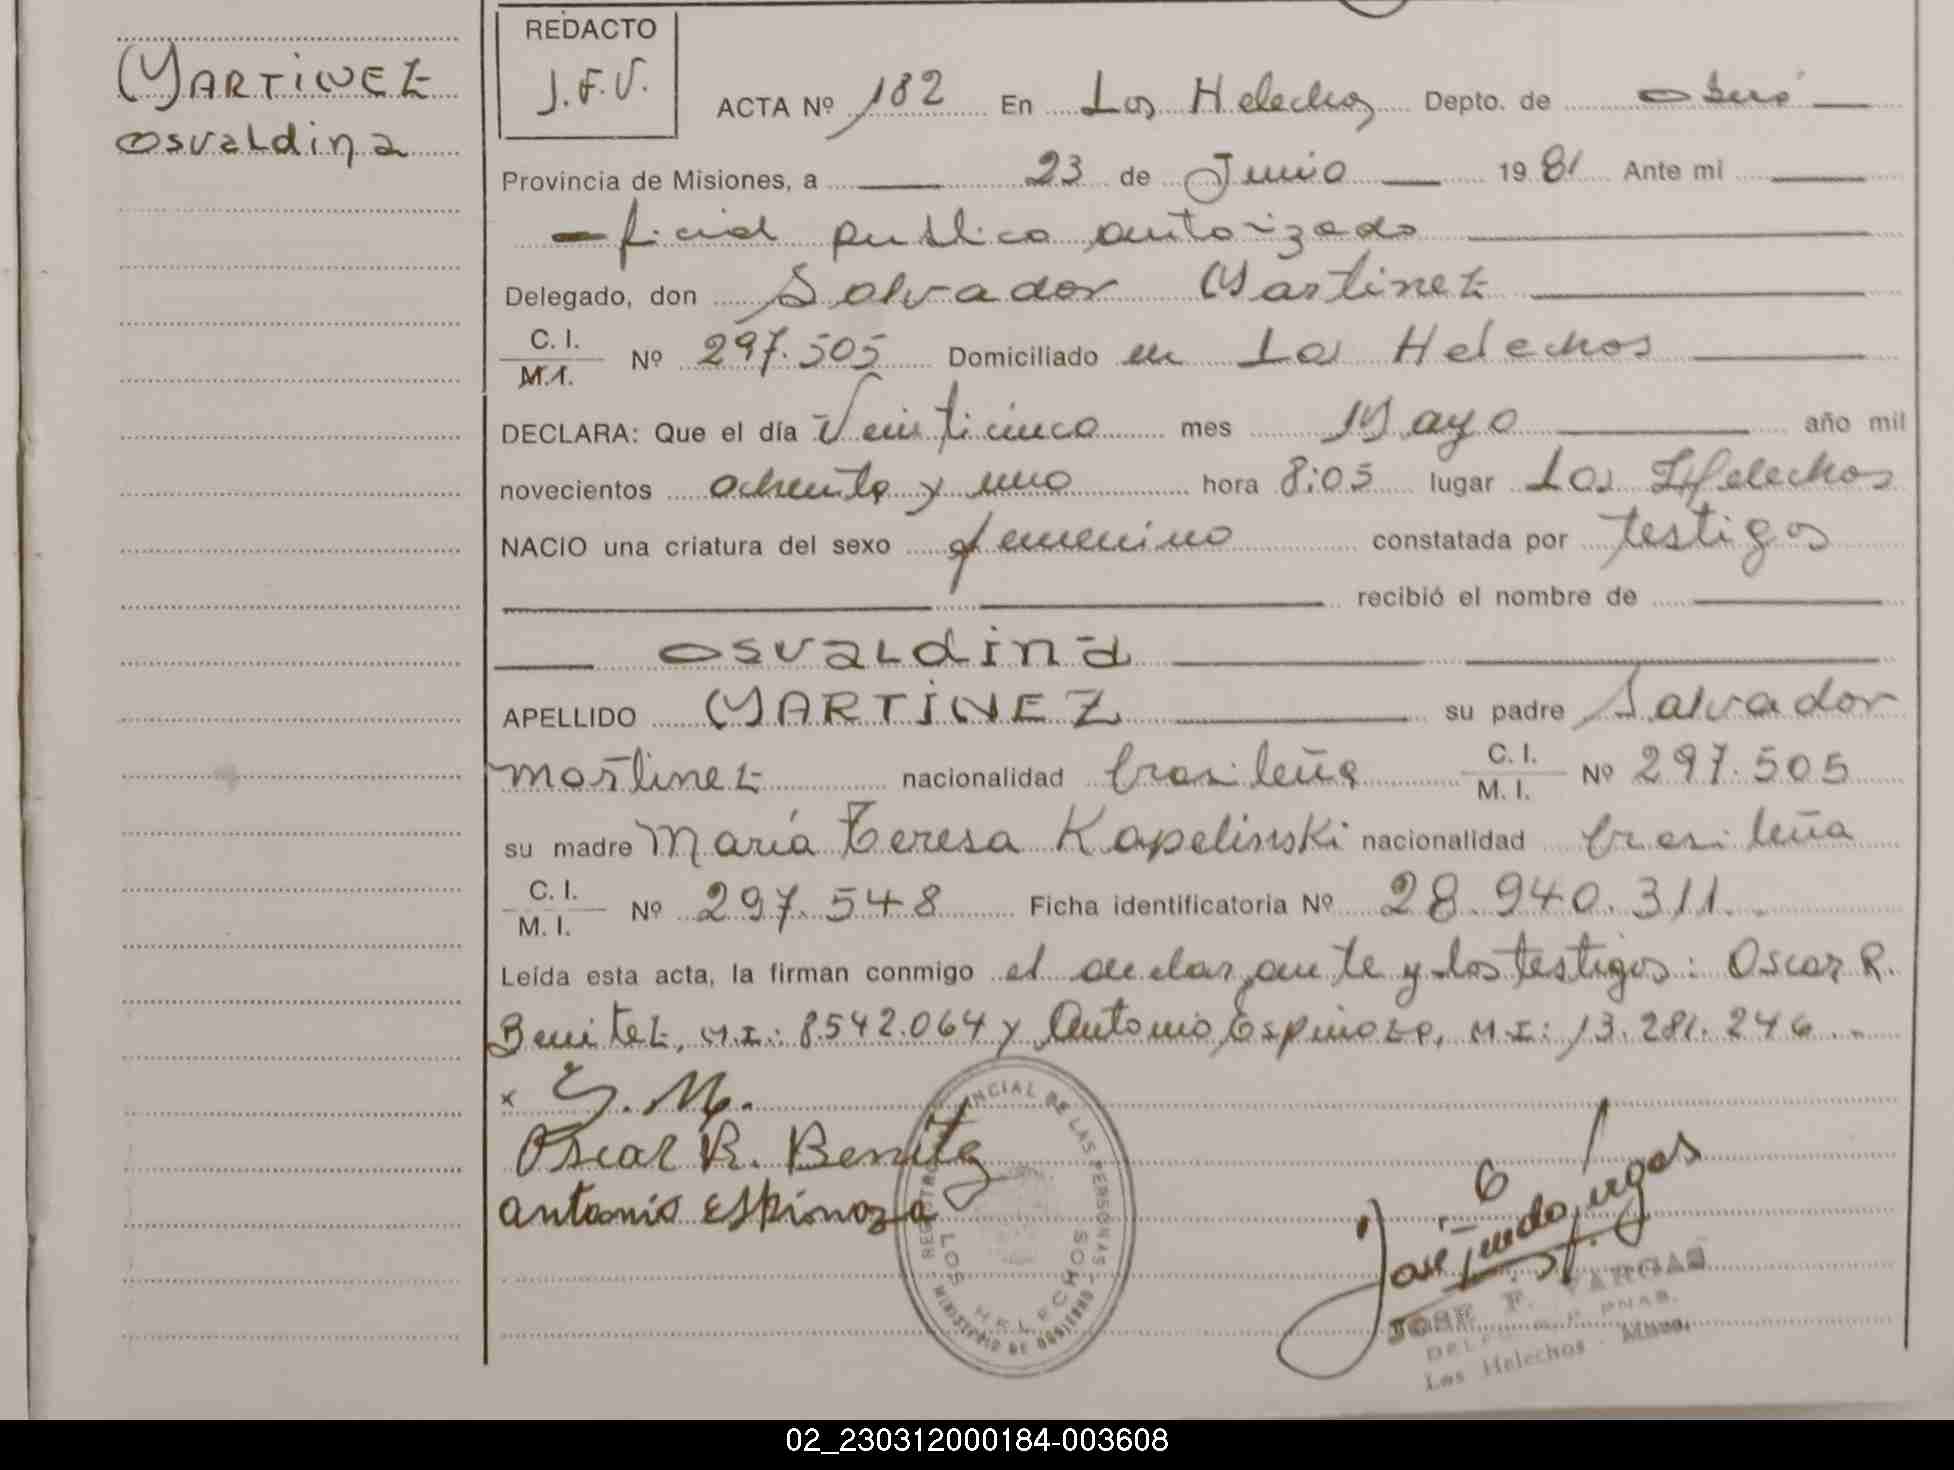 MARTINEZ
Osvaldina
REDACTO
J.F.V.
ACTA Nº 182 En Los Helechos Depto. de Oberá
Provincia de Misiones, a 23 de Junio 1981 Ante mi
Oficial publico autorizado
Delegado, don Salvador Martinez
C. I.
M. I.
Nº 297.505 Domiciliado en Los Helechos
DECLARA: Que el día Veinticinco mes Mayo año mil
novecientos ochenta y uno hora 8:05 lugar Los Helechos
NACIO una criatura del sexo femenino constatada por testigos
recibió el nombre de
Osvaldina
APELLIDO MARTINEZ su padre Salvador
Martinez nacionalidad brasileña C. I. M. I. Nº 297.505
su madre María Teresa Kapelinski nacionalidad brasileña
C. I.
M. I.
Nº 297.548 Ficha identificatoria Nº 28.940.311.
Leída esta acta, la firman conmigo el declarante y los testigos: Oscar R.
Benitez, M.I.: 8.542.064 y Antonio Espinoza, M.I.: 13.281.246.
x S. M.
Oscar R. Benitez
Antonio Espinoza
REGISTRO PROVINCIAL DE LAS PERSONAS
LOS HELECHOS
MINISTERIO DE GOBIERNO
JOSE F. VARGAS
Los Helechos - Mnes.
02_230312000184-003608